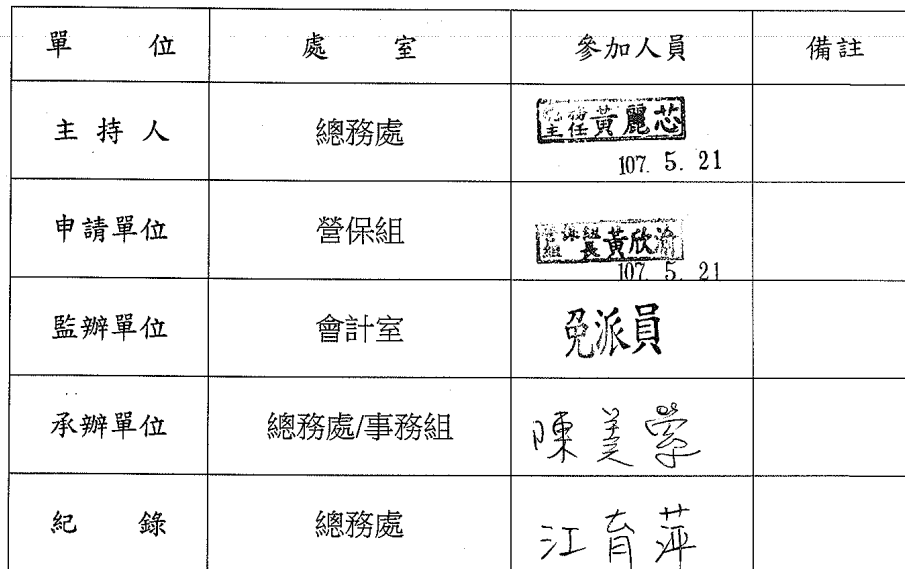 單 位 處 室 參加人員 備註
主 持 人 總務處 總務主任 黃麗芯
107. 5. 21
申請單位 營保組 營保組組長 黃欣渝
107 5 21
監辦單位 會計室 免派員
承辦單位 總務處/事務組 陳美縈
紀 錄 總務處 江育萍